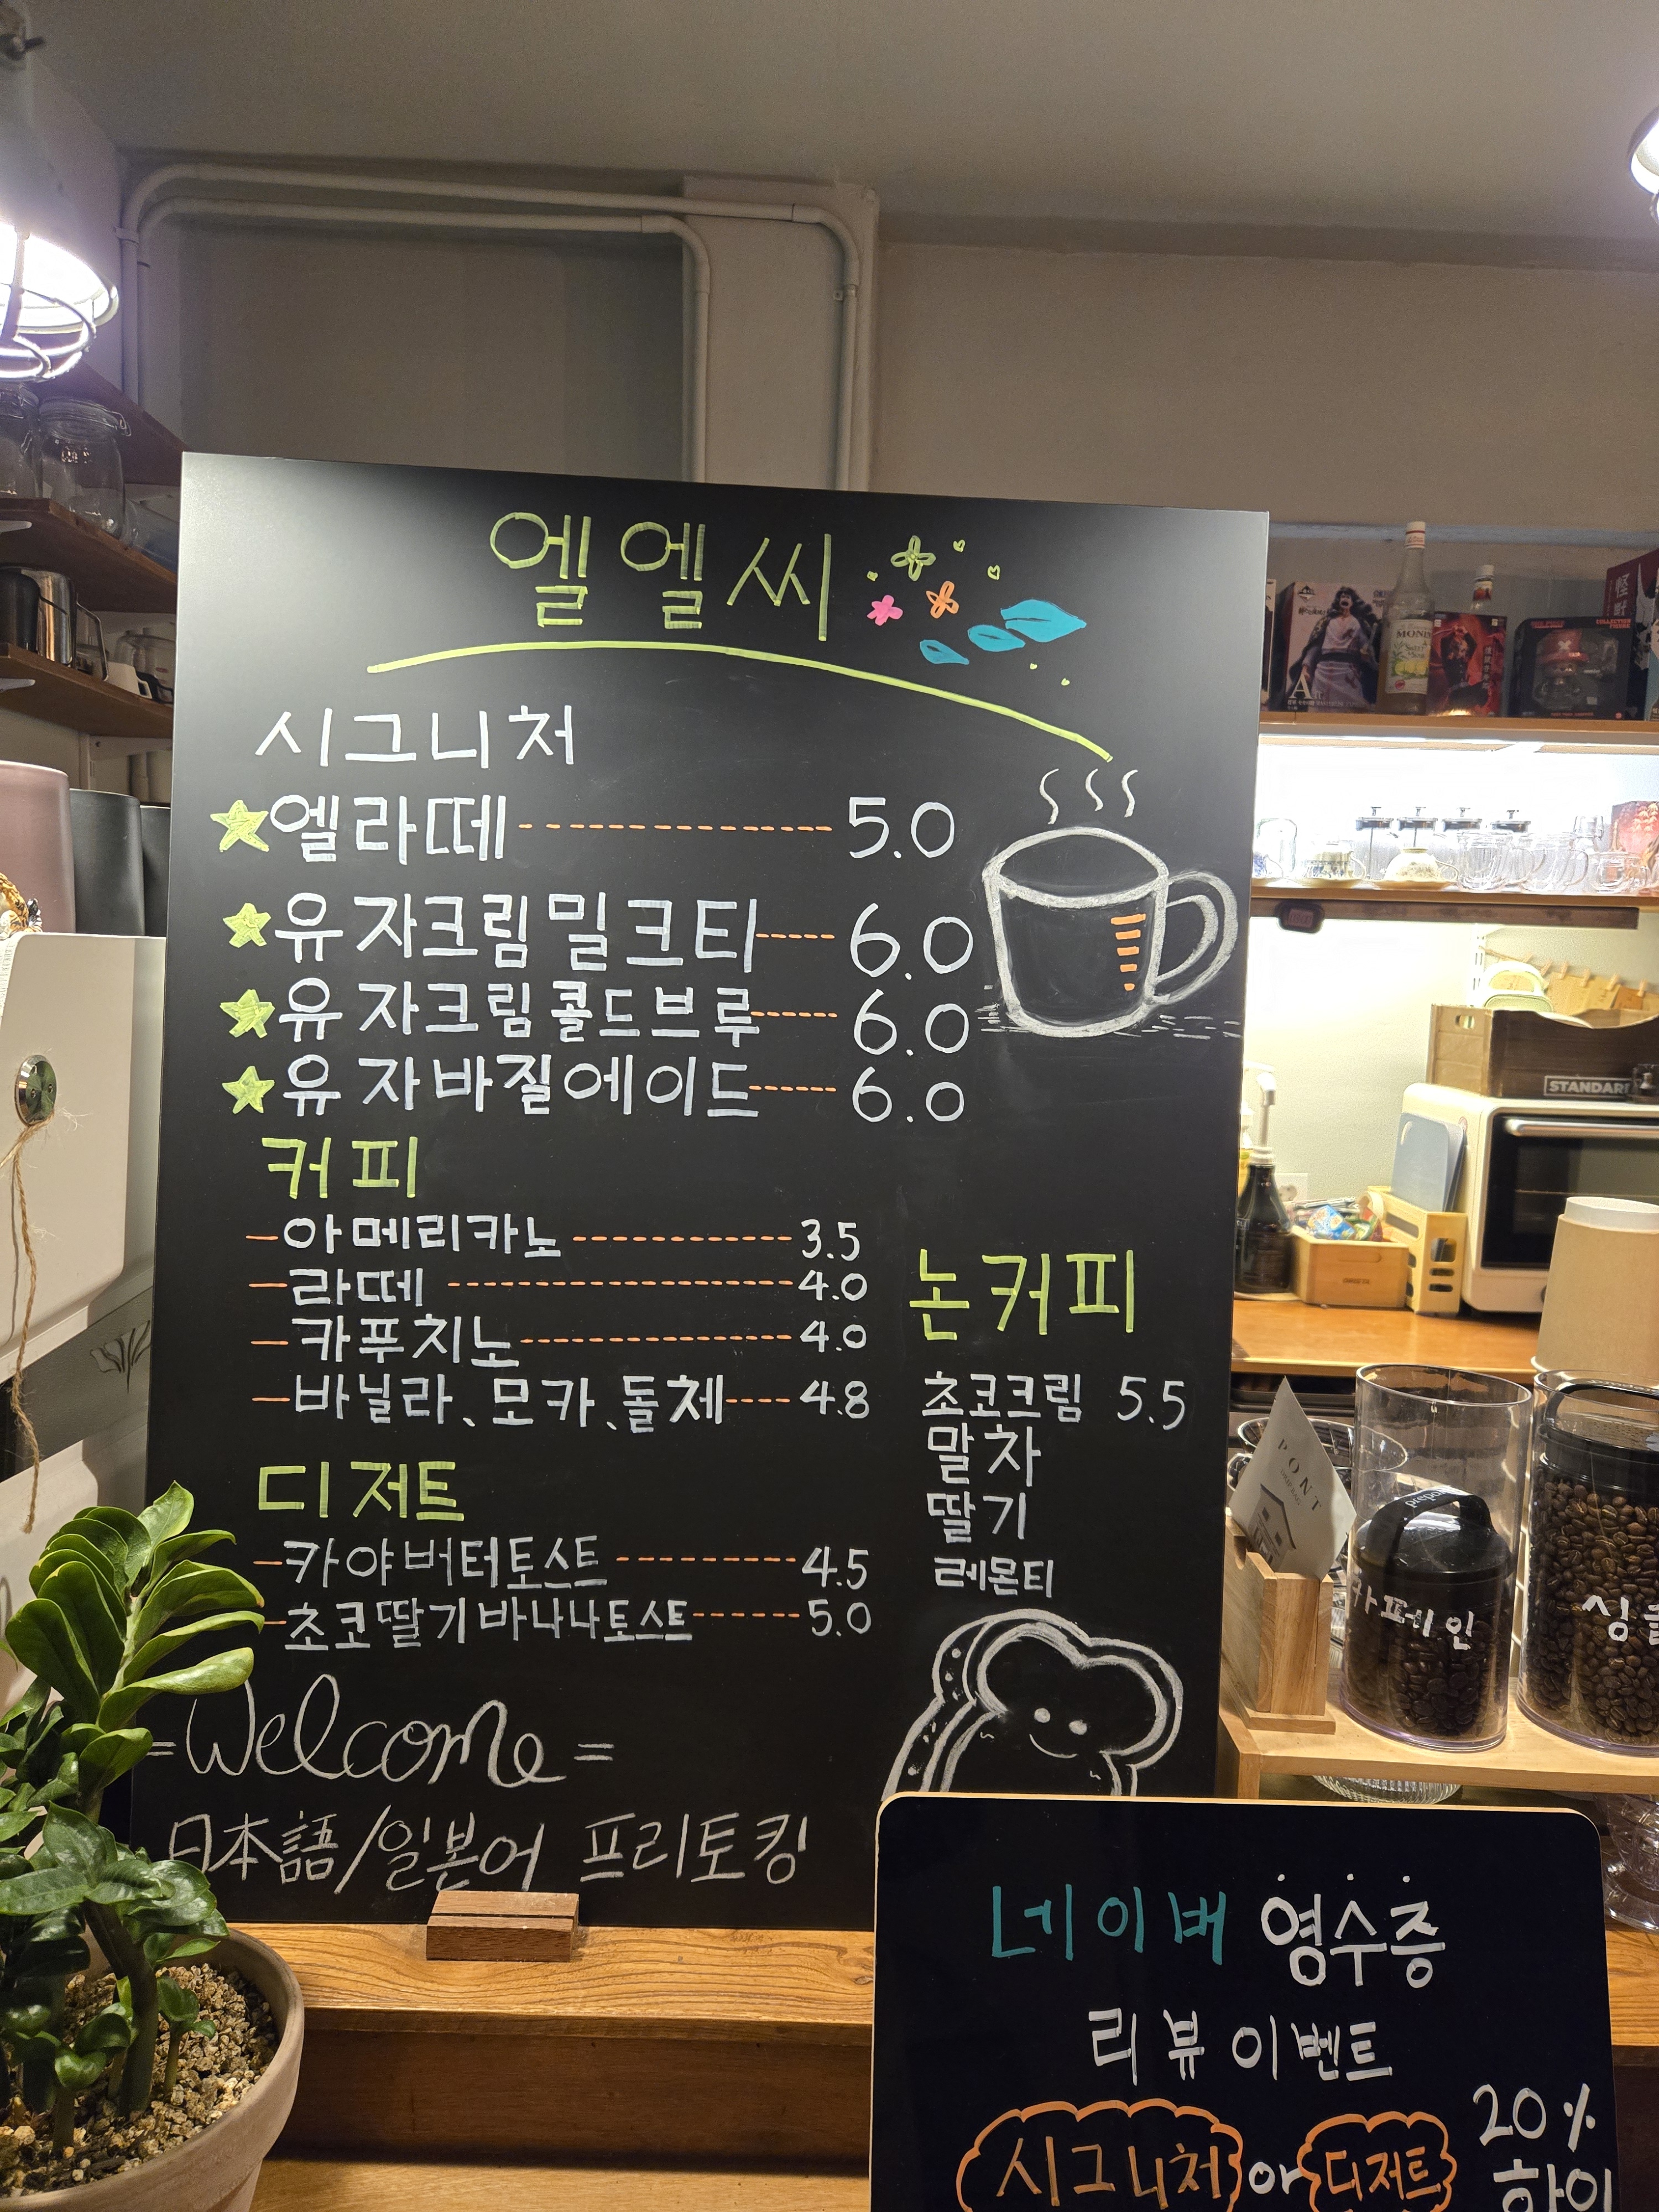 엘엘씨
시그니처
엘라떼 5.0
유자크림밀크티 6.0
유자크림콜드브루 6.0
유자바질에이드 6.0
커피
아메리카노 3.5
라떼 4.0
카푸치노 4.0
바닐라、모카、돌체 4.8
디저트
카야버터토스트 4.5
초코딸기바나나토스트 5.0
논커피
초코크림 5.5
말차
딸기
레몬티
=Welcome=
日本語/일본어 프리토킹
네이버 영수증
리뷰 이벤트
시그니처 or 디저트 20%
STANDARD
PONT
카페인
MONIN